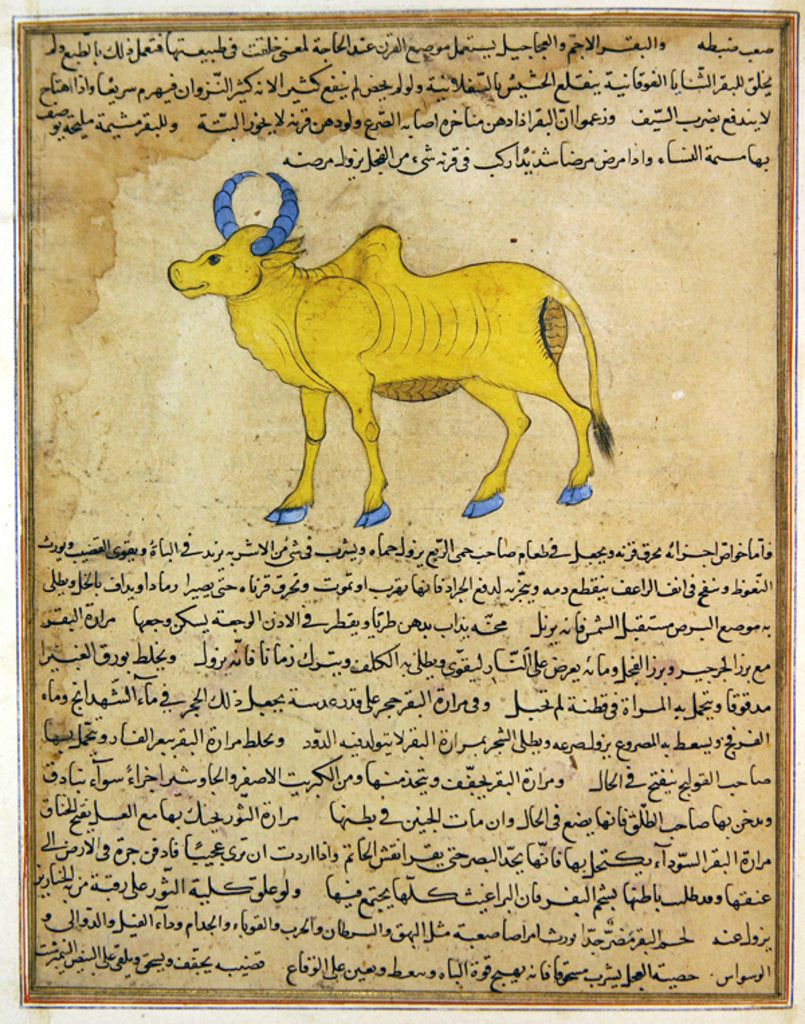 صعب ضبطه والبقر الاجم والعجاجيل يستعمل موضع القرن عند الحاجة لمعنى خلقت في طبيعتها فتعمل ذلك بالطبع ولم
يخلق للبقر الثنايا الفوقانية ينقلع الحشيش بالسفلانية ولو لم يخص لم ينفع كثير الانه كثير النزوان فيهرم سريعا واذا اهتاج
لا يندفع بضرب السيف وزعموا ان البقر اذا دهن مناخره اصابه الصرع ولو دهن قرنه لا يخور البتة وللبقر مشيمة مليحة يوصف
بها مسمة النساء واذا مرض مرضا شديدا ركب في قرنه شيء من الفجل يزول مرضه
فاما خواص اجزائه يحرق قرنه ويجعل في طعام صاحب حمى الربع يزول حماه ويشرب في شئ من الاشربه يزيد في الباة ويقوى القضيب ويورث
النعوظ وينفخ في انف الراعف ينقطع دمه ويتجر به لدفع الجراد فانها تهرب او تموت ويحرق قرناه حتى يصيرا رمادا ويداف بالخل ويطلى
به موضع البرص مستقبل الشمس فانه يزيل مخه يذاب بدهن طريا ويقطر في الاذن الوجعة يسكن وجعها مرارة البقر
مع بزر الجرجير وبزر الفجل ومائه يعرض على النار ليقوى ويطلى به الكلف ويترك زمانا فانه يزول ويخلط بورق الغبيرا
مدقوقا ويتحمل به المراة في قطنة لم تحبل وفي مرارة البقر حجر على قدر عدسة يجعل ذلك الحجر في ماء الشهدانج وماء
ويسعط به المصروع يزول صرعه ويطلى الشجر بمرارة البقر لا يتولد فيه الدود ويخلط مرارة البقر ببعر الفار ويتحمل بها
صاحب القولنج ينفتح في الحال ومرارة البقر يجفف ويتخذ منها ومن الكبريت الاصفر والجاوشير اجزاء سواء بنادق
ويدخن بها صاحب الطلق فانها يضع في الحال وان مات الجنين في بطنها مرارة الثور يحنك بها مع العسل ينفع الخناق
مرارة البقر السوداء يكتحل بها فانها يحد البصر حتى يقرا نقش الخاتم واذا اردت ان ترى عجيبا فادفن جرة في الارض الى
عنقها وقد طلب باطنها بشحم البقر فان البراغيث كلها يجتمع فيها ولو علق كلية الثور على رقبة من به الخنازير
يزول عنه لحم البقر مضر جدا يورث امراضا صعبة مثل البهق والسرطان والجرب والقوباء والجذام وداء الفيل والدوالى و
الوسواس خصية العجل يشرب مسحوقا فانه يهيج قوة الباه ويسعط ويعين على الوقاع قضيبه يجفف ويسحق ويلقى على البيض النيمرشت